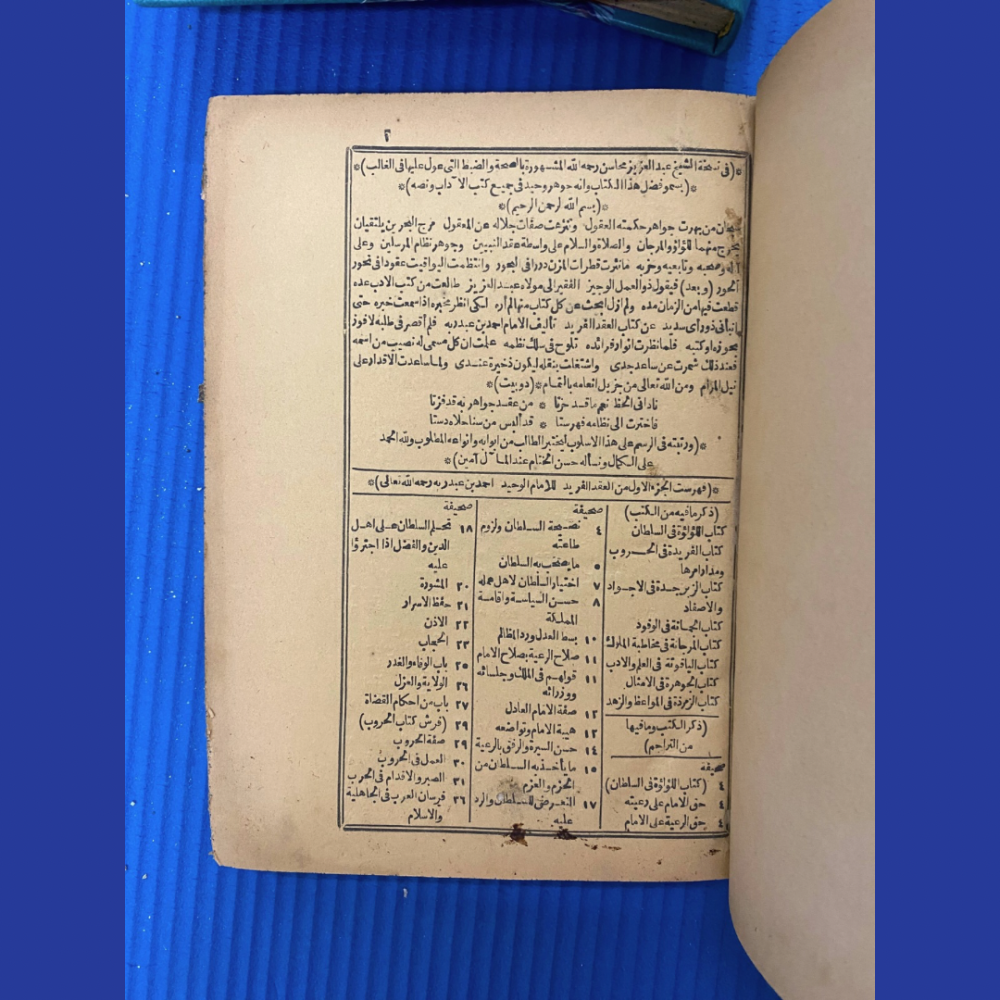 ٢
*(في نسخة الشيخ عبد العزيز محاسن رحمه الله المشهورة بالصحة والضبط التي عول عليها في الغالب)*
*(يسمو فضل هذا الكتاب وانه جوهر وحيد في جميع كتب الآداب ونصه)*
*(بسم الله الرحمن الرحيم)*
من بهرت جواهر حكمته العقول وتنزهت صفات جلاله عن المعقول مرج البحرين يلتقيان
يخرج منهما اللؤلؤ والمرجان والصلاة والسلام على واسطة عقد النبيين وجوهر نظام المرسلين وعلى
آله وصحبه وتابعيه وحزبه ما نثرت قطرات المزن دررا في البحور وانتظمت اليواقيت عقودا في نحور
الحور (وبعد) فيقول ذو العمل الوجيز الفقير الى مولاه عبد العزيز طالعت من كتب الادب عده
قطعت فيها من الزمان مده ولم ازل ابحث عن كل كتاب منها لم اره لكى انظر مخبره اذا سمعت خبره حتى
انبأنى ذو رأى سديد عن كتاب العقد الفريد تأليف الامام احمد بن عبد ربه فلم أقصر في طلبه لافوز
بحوزه او كتبه فلما نظرت انوار فرائده تلوح في سلك نظمه علمت ان كل مسمى له نصيب من اسمه
فعند ذلك شمرت عن ساعد جدى واشتغلت بنقله ليكون ذخيرة عندى ولما ساعدت الاقدار على
نيل المرام ومن الله تعالى من جزيل انعامه بالتمام *(دوبيت)*
نادانى الحظ نعم ما قد حزتا * من عقد جواهر به قد فزتا
فاخترت الى نظامه فهرستا * قد ألبس من سنا حلاه دستا
*(ورتبته في الرسم على هذا الاسلوب ليختبر الطالب من ابوابه وانواعه المطلوب ولله الحمد
على الكمال ونسأله حسن الختام عند المآل آمين)*
*(فهرست الجزء الاول من العقد الفريد للامام الوحيد احمد بن عبد ربه رحمه الله تعالى)*
(ذكر ما فيه من الكتب)
كتاب اللؤلؤة في السلطان
كتاب الفريدة في الحروب
ومدار امرها
كتاب الزبرجدة في الاجواد
والاصفاد
كتاب الجمانة في الوفود
كتاب المرجانة في مخاطبة الملوك
كتاب الياقوتة في العلم والادب
كتاب الجوهرة في الامثال
كتاب الزمرذة في المواعظ والزهد
(ذكر الكتب وما فيها
من التراجم)
صحيفة
٤ (كتاب اللؤلؤة في السلطان)
٤ حق الامام على رعيته
٤ حق الرعية على الامام
صحيفة
٤ نصيحة السلطان ولزوم
طاعته
٥ ما يصحب به السلطان
٧ اختيار السلطان لاهل عمله
٨ حسن السياسة واقامة
المملكة
١٠ بسط العدل ورد المظالم
١١ صلاح الرعية بصلاح الامام
١١ قولهم في الملك وجلسائه
ووزرائه
١٢ صفة الامام العادل
١٢ هيبة الامام وتواضعه
١٤ حسن السيرة والرفق بالرعية
١٥ ما يأخذ به السلطان من
الحزم والعزم
١٧ التعرض للسلطان والرد
عليه
صحيفة
١٨ تحلم السلطان على اهل
الدين والفضل اذا اجترؤا
عليه
٢٠ المشورة
٢١ حفظ الاسرار
٢٢ الاذن
٢٣ الحجاب
٢٥ باب الوفاء والغدر
٢٦ الولاية والعزل
٢٧ باب من احكام القضاة
٢٩ (فرش كتاب الحروب)
٢٩ صفة الحروب
٣٠ العمل في الحروب
٣١ الصبر والاقدام في الحرب
٣٦ فرسان العرب في الجاهلية
والاسلام